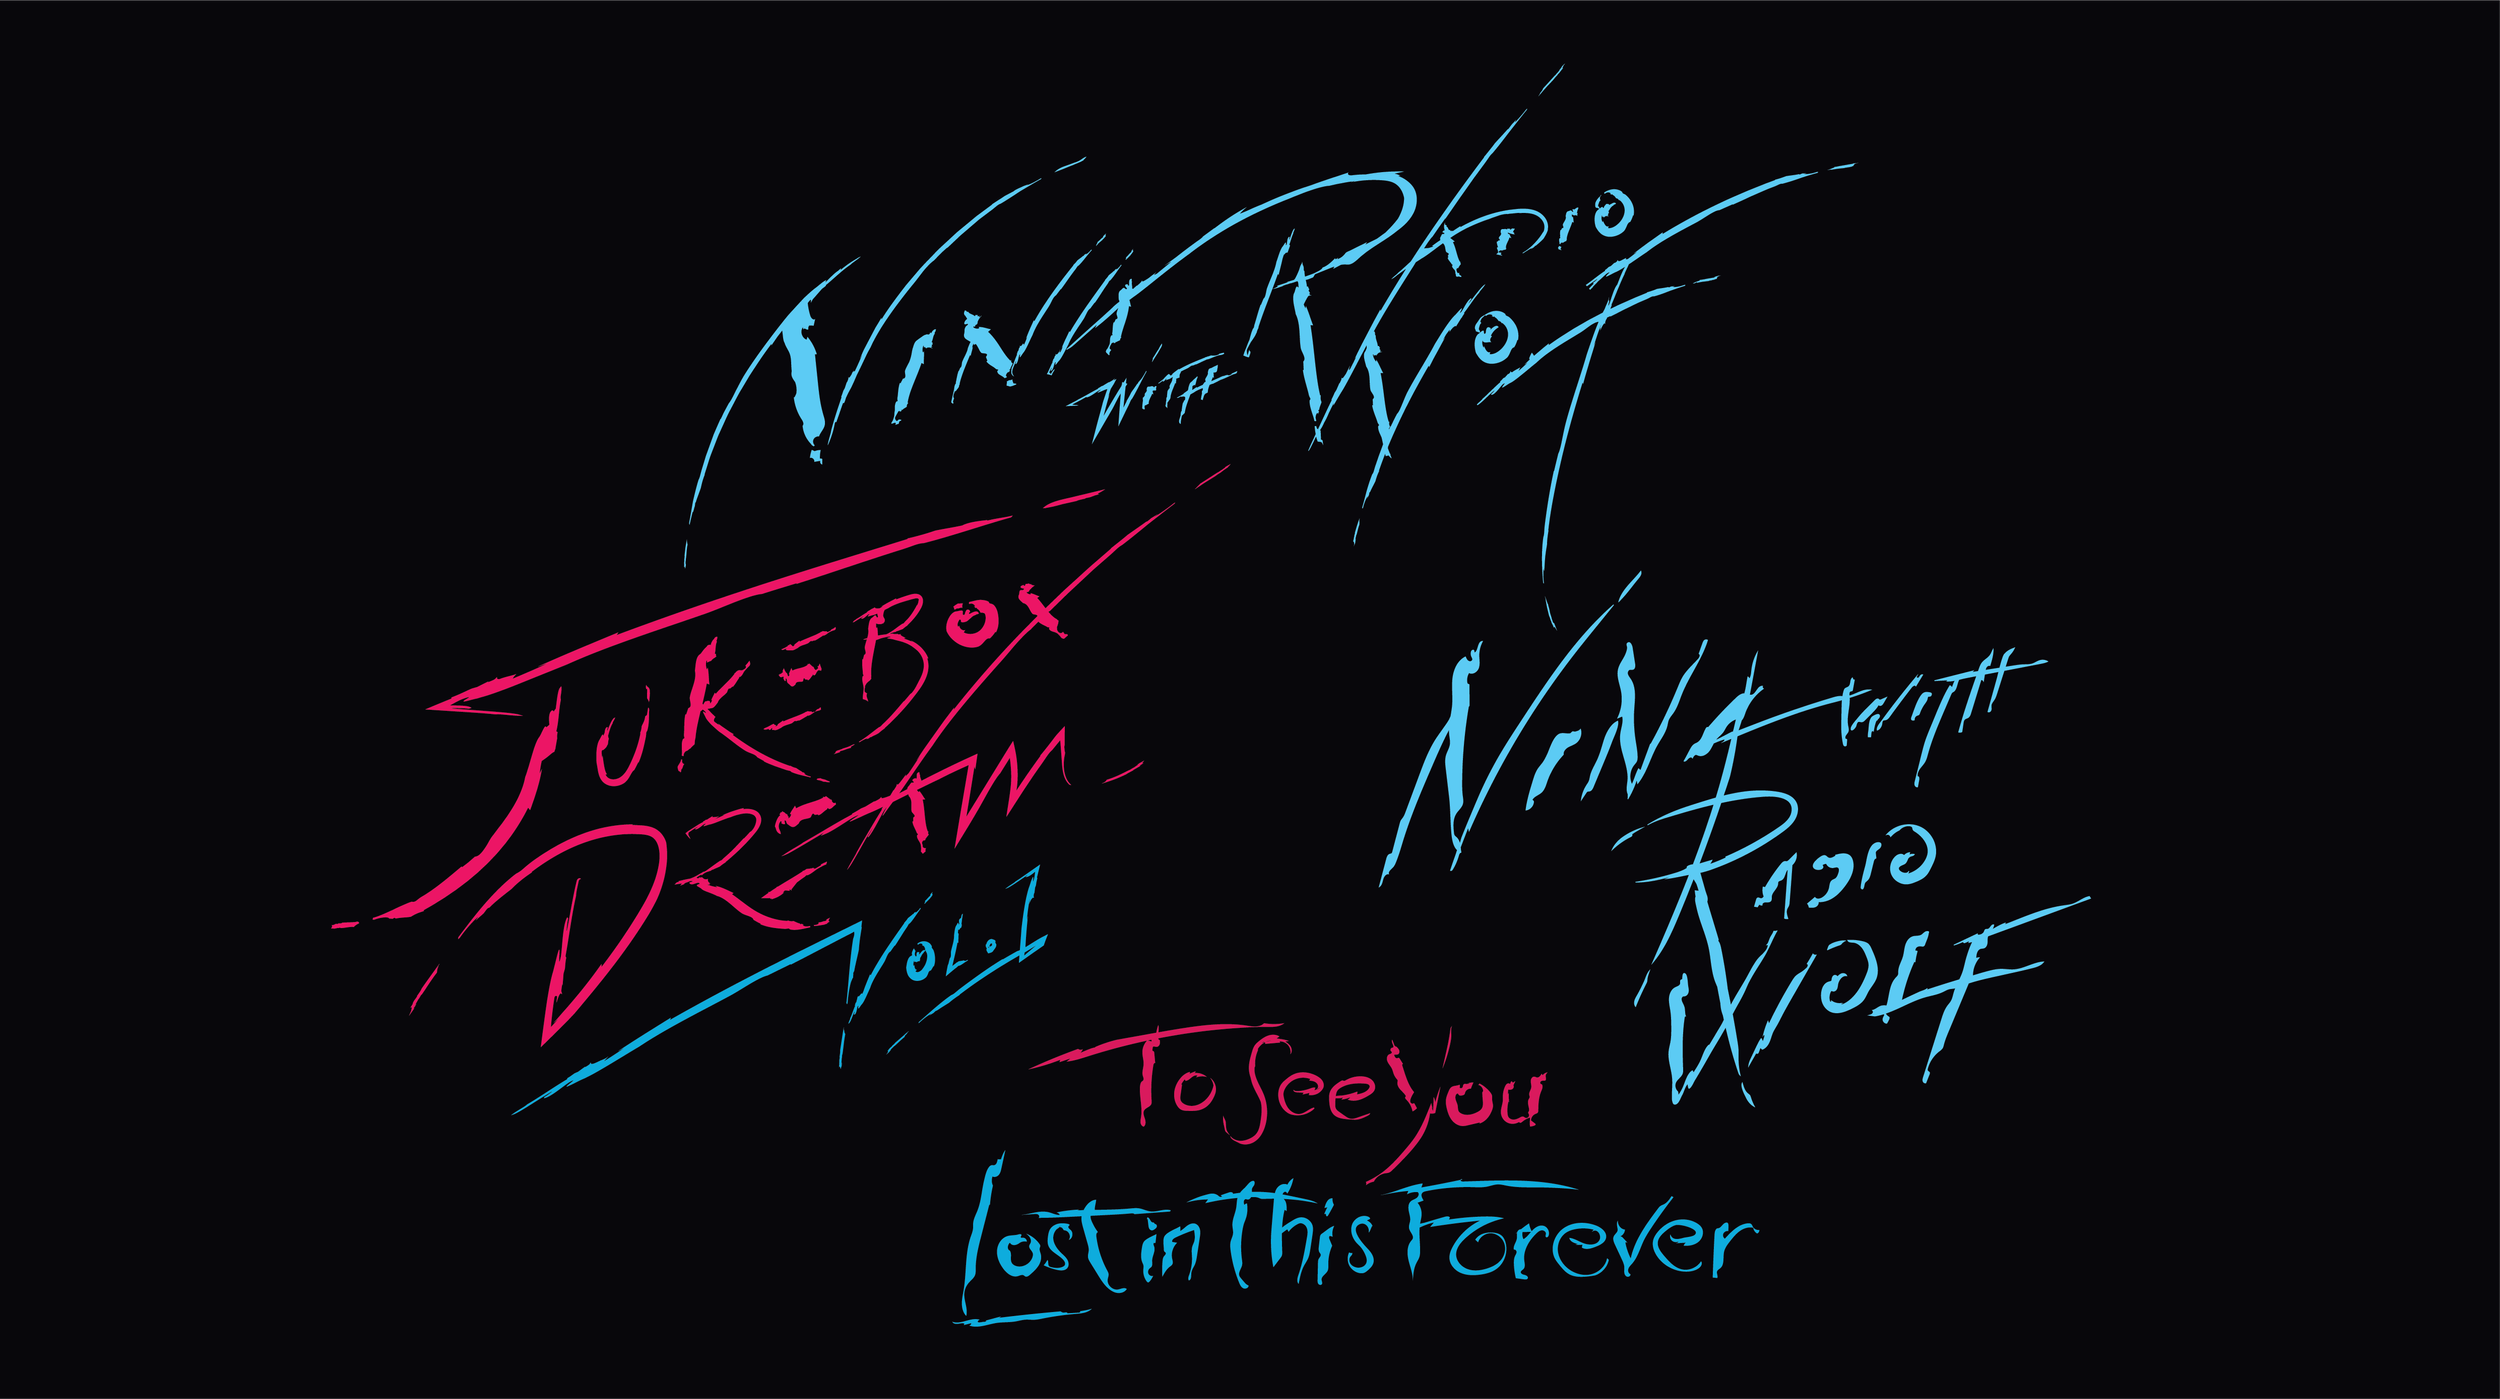 NiNA With RADiO
WOLF
JUKEBOX
DREAM
Vol.1
NiNA with
RADiO
WOLF
To See You
Lost in This Forever